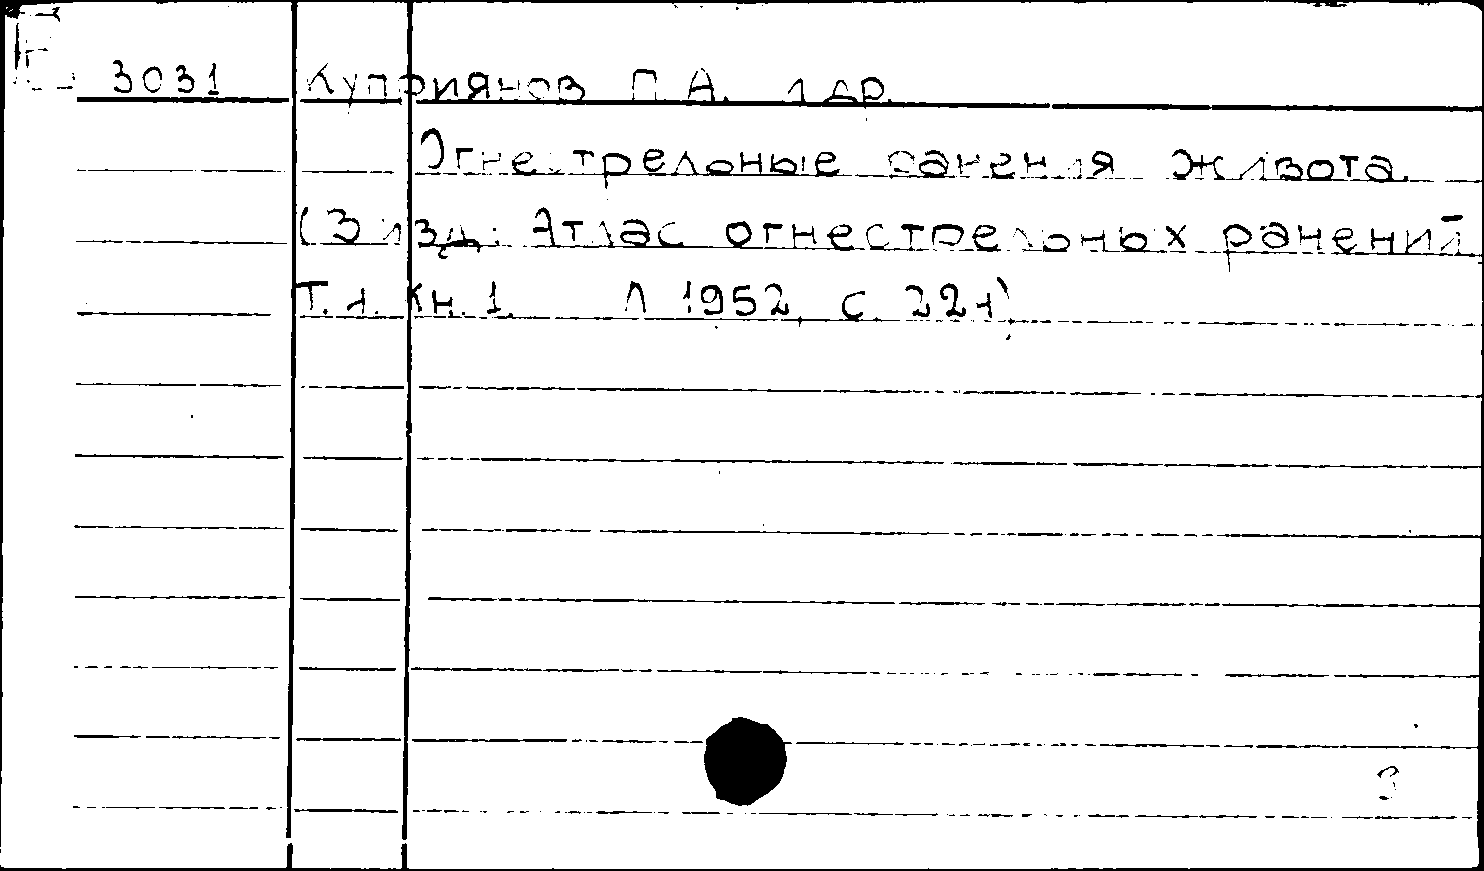 3031 Куприянов П.А. и др.
Огнестрельные ранения живота.
(В изд: Атлас огнестрельных ранений
Кн. 1. Л 1952, с.